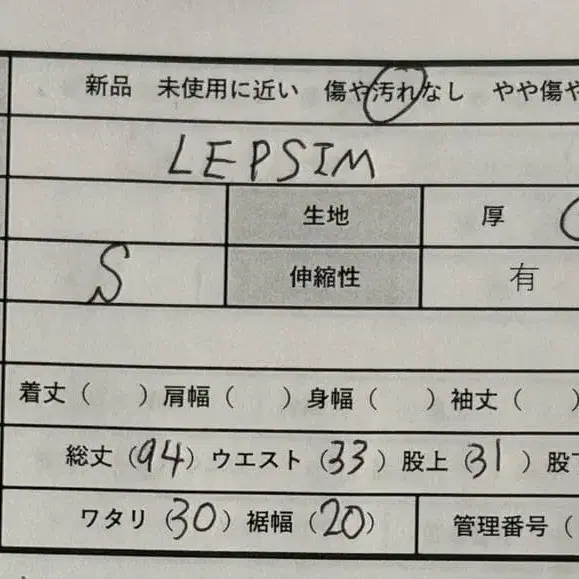 新品 未使用に近い 傷や汚れなし やや傷や
LEPSIM
生地 厚
S 伸縮性 有
着丈( )肩幅( )身幅( )袖丈( )
総丈(94)ウエスト(33)股上(31)股下
ワタリ(30)裾幅(20) 管理番号(